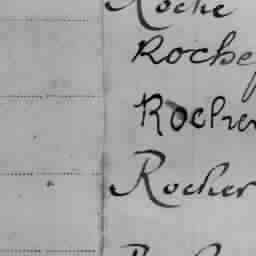 Roche
Roche
Rocher
Rocher